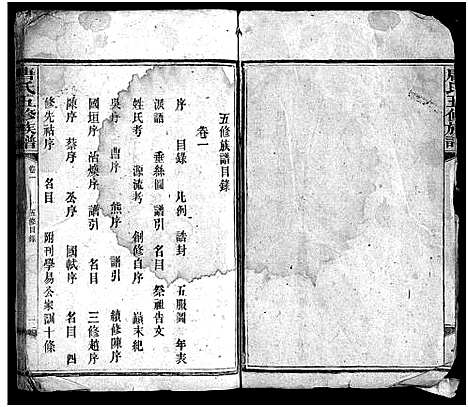 唐氏五修族譜
五修族譜目錄
卷一
序 目錄 凡例 誥封 五服圖 年表
派語 垂絲圖 名目 祭祖告文
姓氏考 源流考 創修自序 巔末紀
吳序 曹序 熊序 譜引 續修陳序
國垣序 治燦序 譜引 名目 三修趙序
陳序 蔡序 丞序 國軾序 名目 四
修先祜序 名目 附刊學易公家訓十條
唐氏五修族譜
卷一
五修目錄